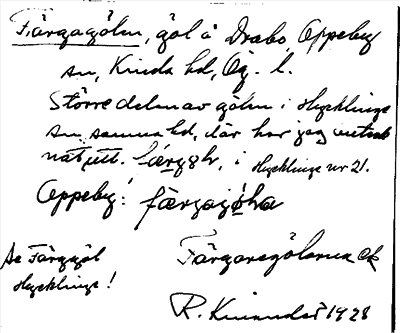 Färgagölen, göl å Drabo, Oppeby
sn, Kinda hd, Ög. l.
Större delen av gölen i Hycklinge
sn, samma hd, där har jag
natutt. i Hycklinge nr 21.
Oppeby:
Se Färggöl
Hycklinge!
Färgaregölarna
R. Kinander 1928